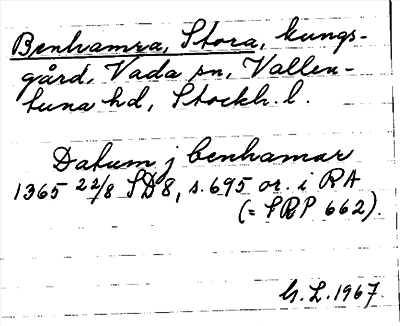 Benhamra, Stora, kungs-
gård, Vada sn, Vallen-
tuna hd, Stockh. l.
Datum j benhamar
1365 22/8 SD 8, s. 695 or. i RA
(= SRP 662).
G. L. 1967.